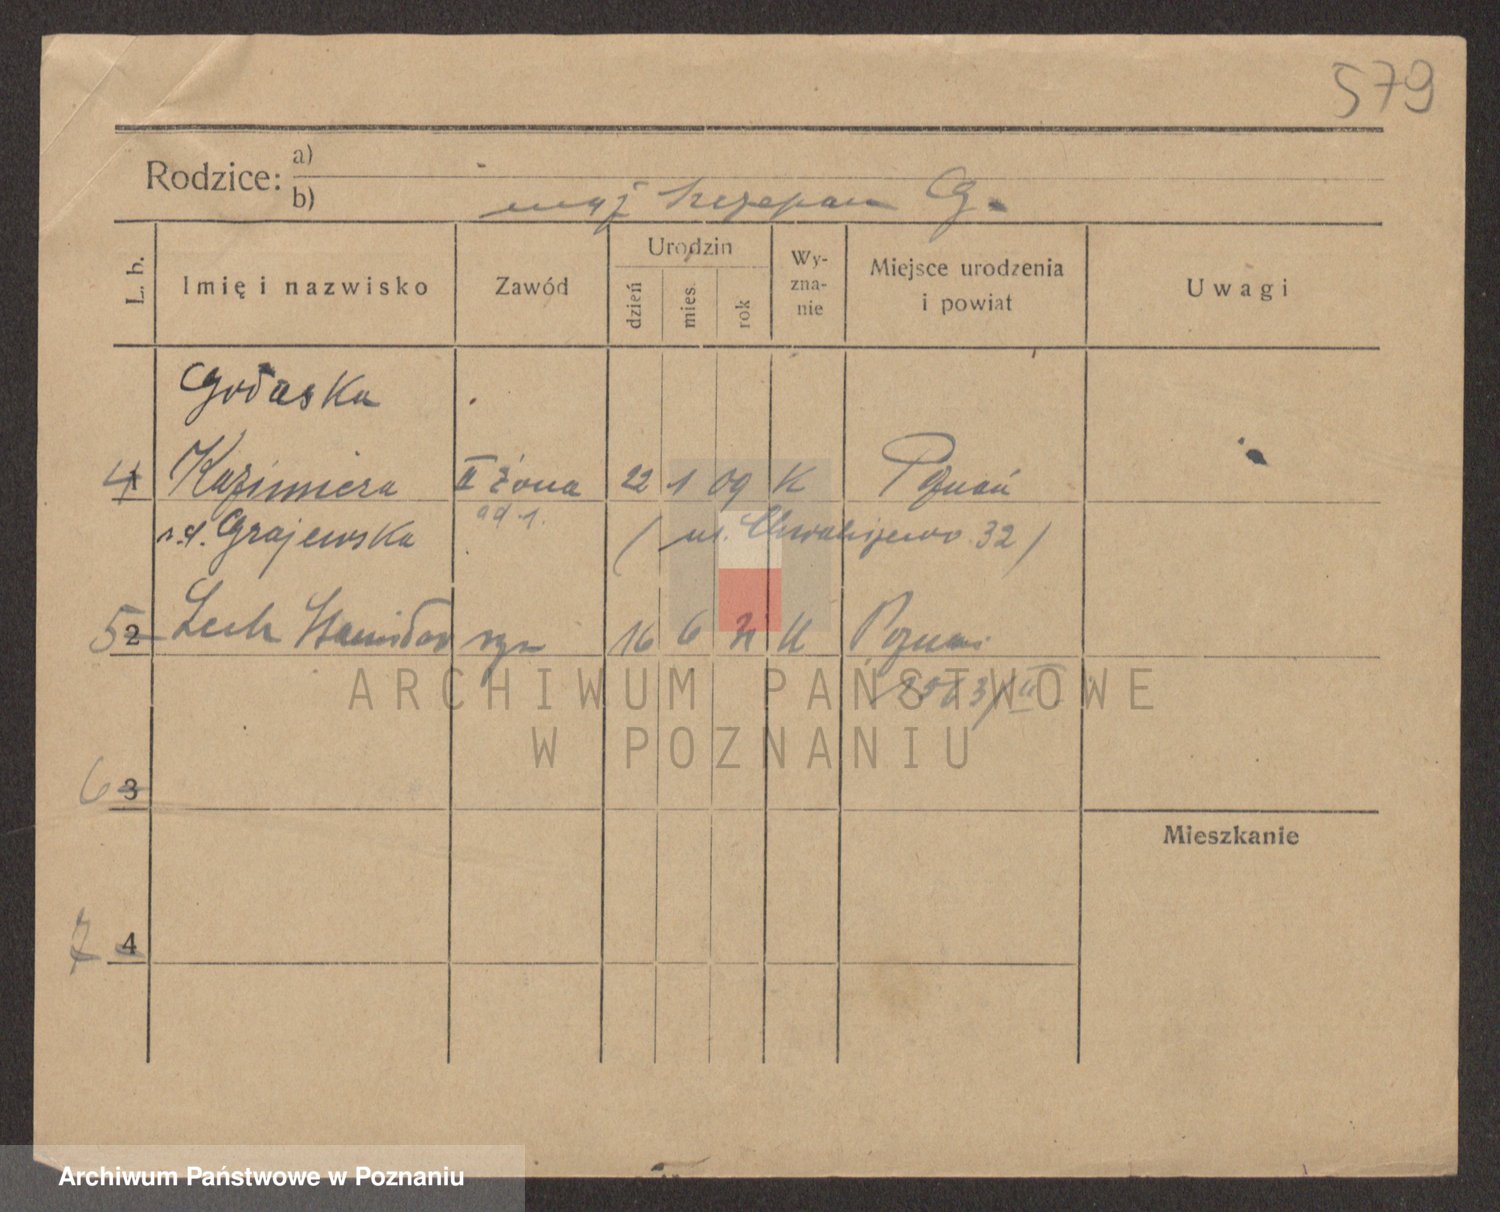 579
Rodzice: a)
b) mąż Szczepan G.
L. b. Imię i nazwisko Zawód Urodzin dzień mies. rok Wy-zna-nie Miejsce urodzenia i powiat Uwagi
Gołaska
4 1 Kazimiera II żona 22 1 09 K Poznań
ad 1.
r.d. Grajewska (ul. 32)
5 2 Lech Stanisław syn 16 6 31 K Poznań
6 3
Mieszkanie
7 4
ARCHIWUM PAŃSTWOWE
W POZNANIU
Archiwum Państwowe w Poznaniu